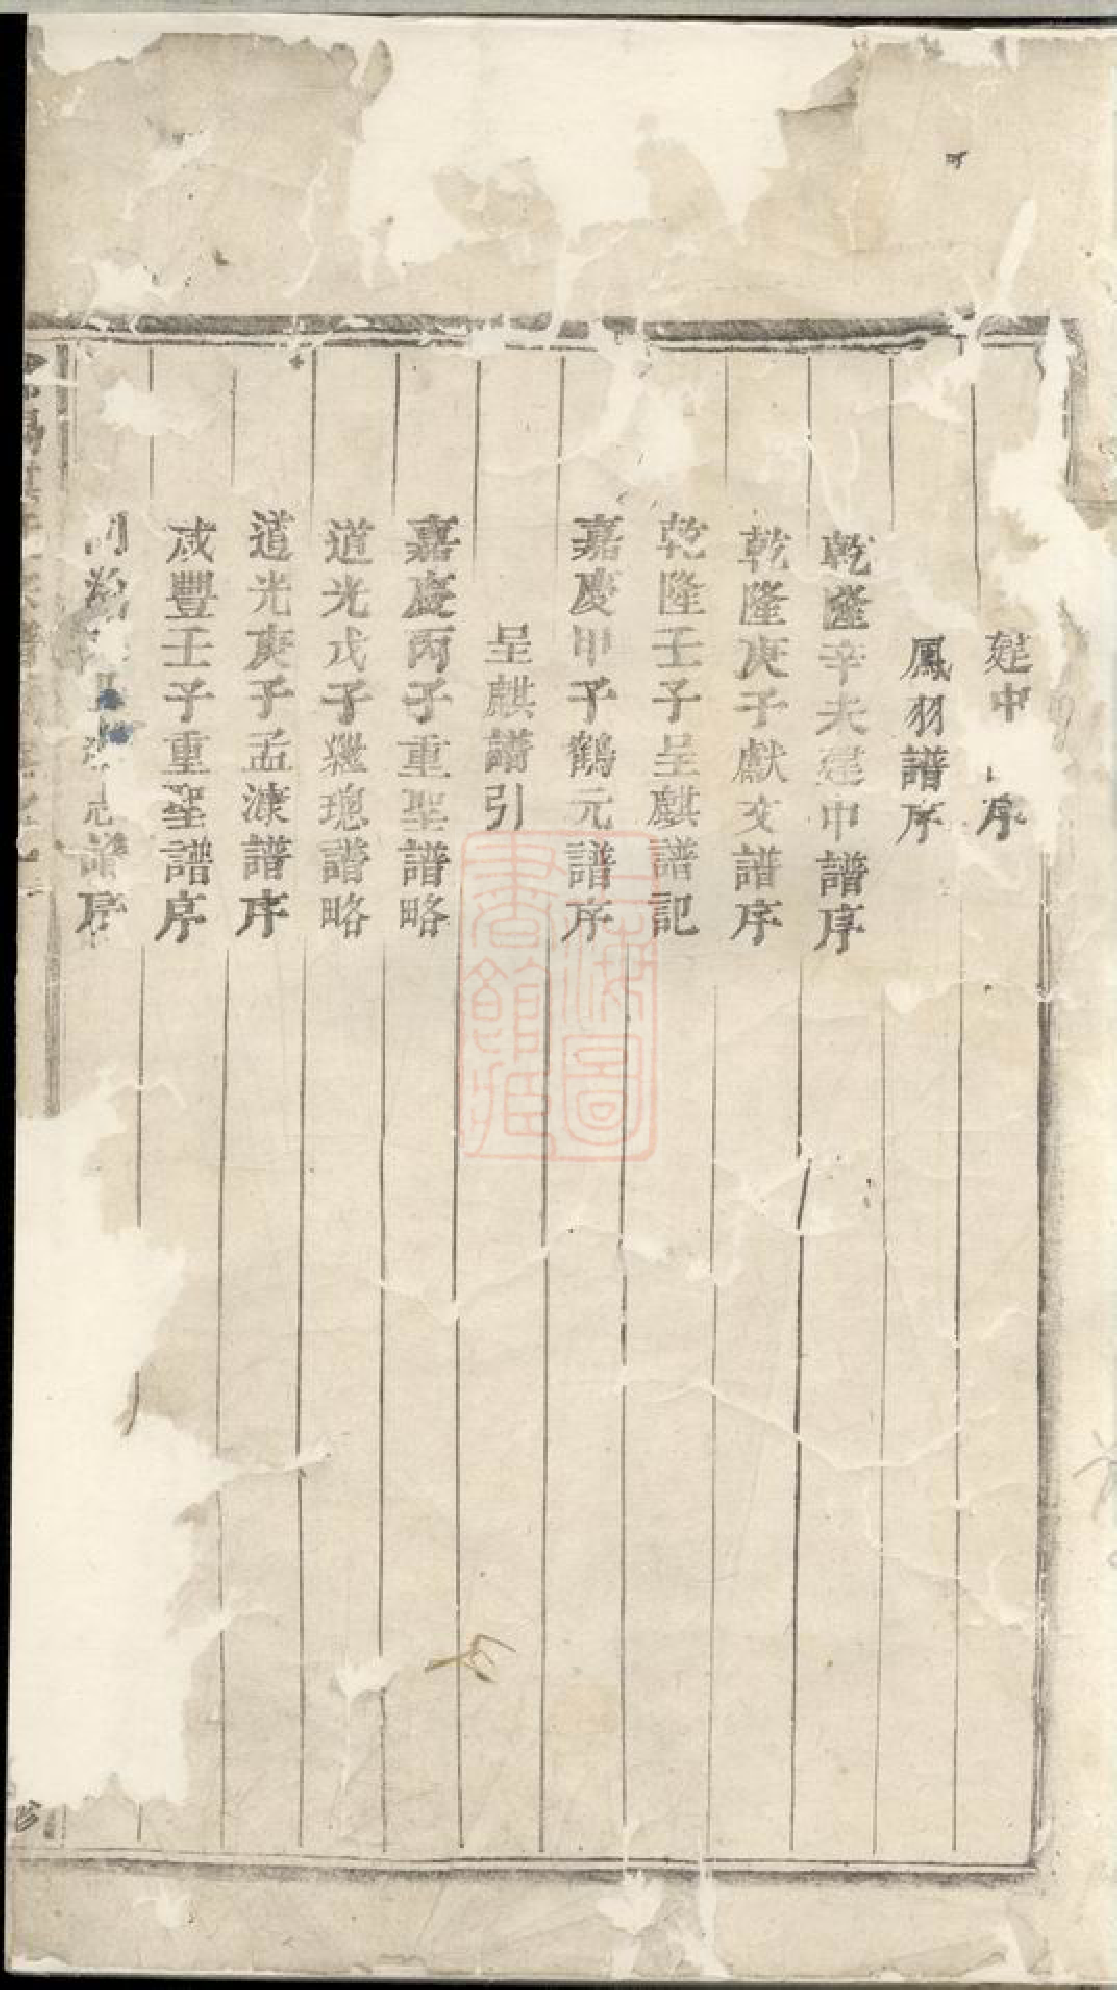 建中 序
鳳羽譜序
乾隆辛未建中譜序
乾隆庚子獻文譜序
乾隆壬子呈麒譜記
嘉慶甲子鶴元譜序
呈麒譜引
嘉慶丙子重聖譜略
道光戊子繼璁譜略
道光庚子孟漮譜序
咸豐壬子重聖譜序
譜序
上海圖書館藏